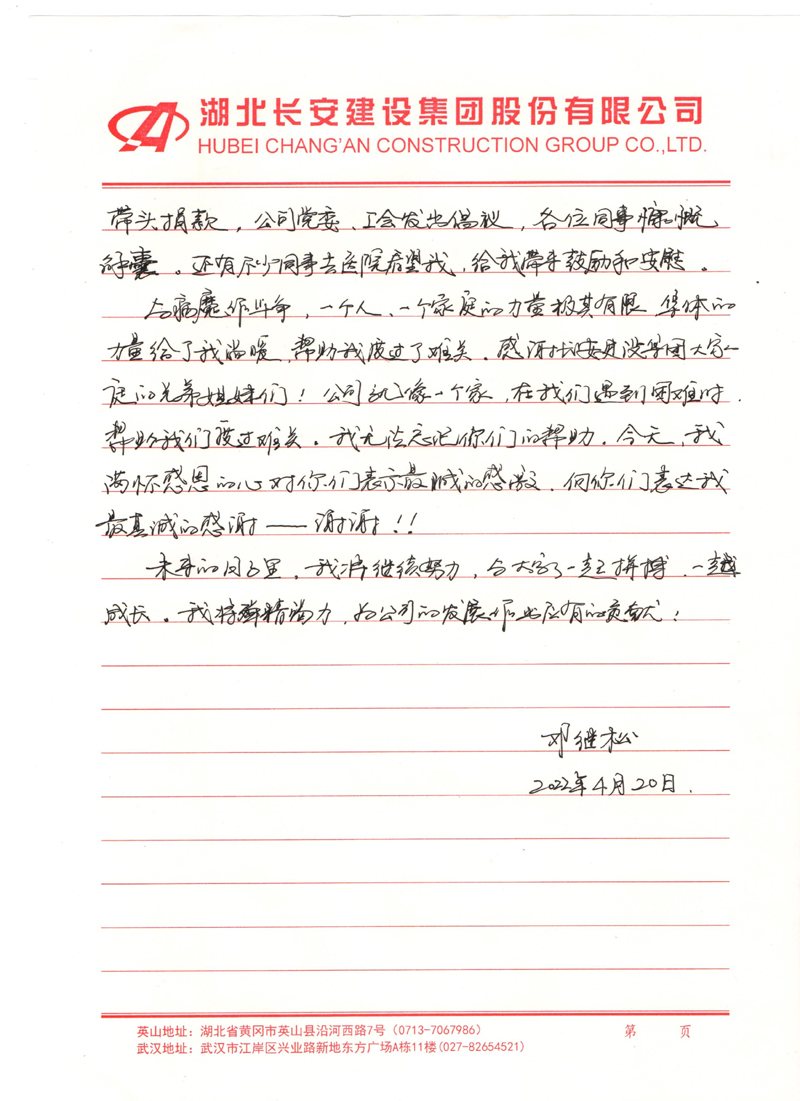 湖北长安建设集团股份有限公司
HUBEI CHANG'AN CONSTRUCTION GROUP CO.,LTD.
带头捐款，公司党委、工会发出倡议，各位同事慷慨
解囊。还有不少同事去医院看望我，给我带来鼓励和安慰。
与病魔作斗争，一个人、一个家庭的力量极其有限，集体的
力量给了我温暖，帮助我度过了难关。感谢长安建设集团大家
庭的兄弟姐妹们！公司就像一个家，在我们遇到困难时，
帮助我们度过难关。我无法忘记你们的帮助。今天，我
满怀感恩的心对你们表示最诚的感激，向你们表达我
最真诚的感谢——谢谢！！
未来的日子里，我将继续努力，与大家一起拼搏，一起
成长。我将殚精竭力，为公司的发展作出应有的贡献！
邓继松
2022年4月20日.
英山地址：湖北省黄冈市英山县沿河西路7号（0713-7067986）
第 页
武汉地址：武汉市江岸区兴业路新地东方广场A栋11楼(027-82654521)